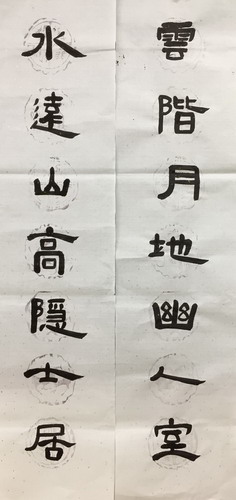 雲階月地幽人室
水遠山高隠士居